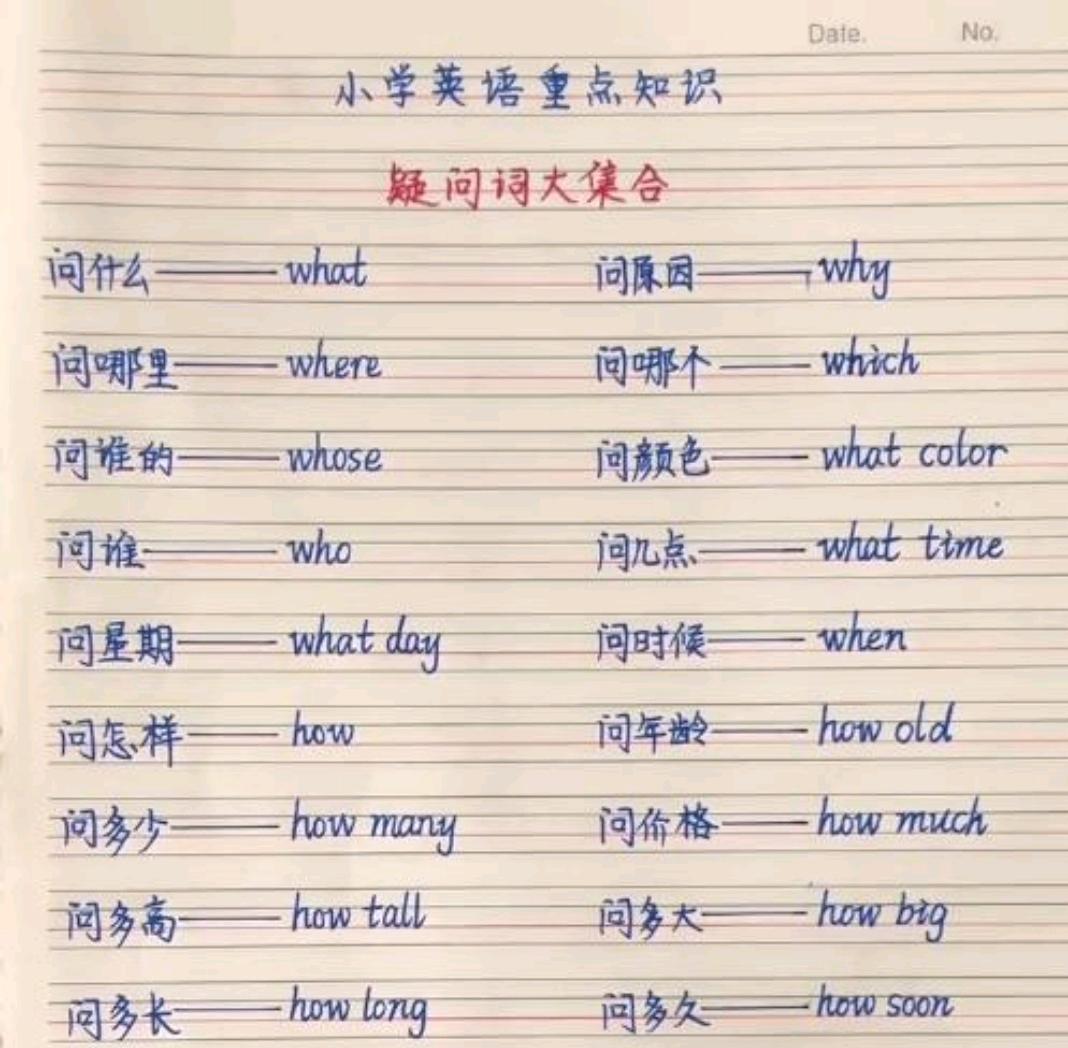 Date. No.
小学英语重点知识
疑问词大集合
问什么——what 问原因——why
问哪里——where 问哪个——which
问谁的——whose 问颜色——what color
问谁——who 问几点——what time
问星期——what day 问时候——when
问怎样——how 问年龄——how old
问多少——how many 问价格——how much
问多高——how tall 问多大——how big
问多长——how long 问多久——how soon